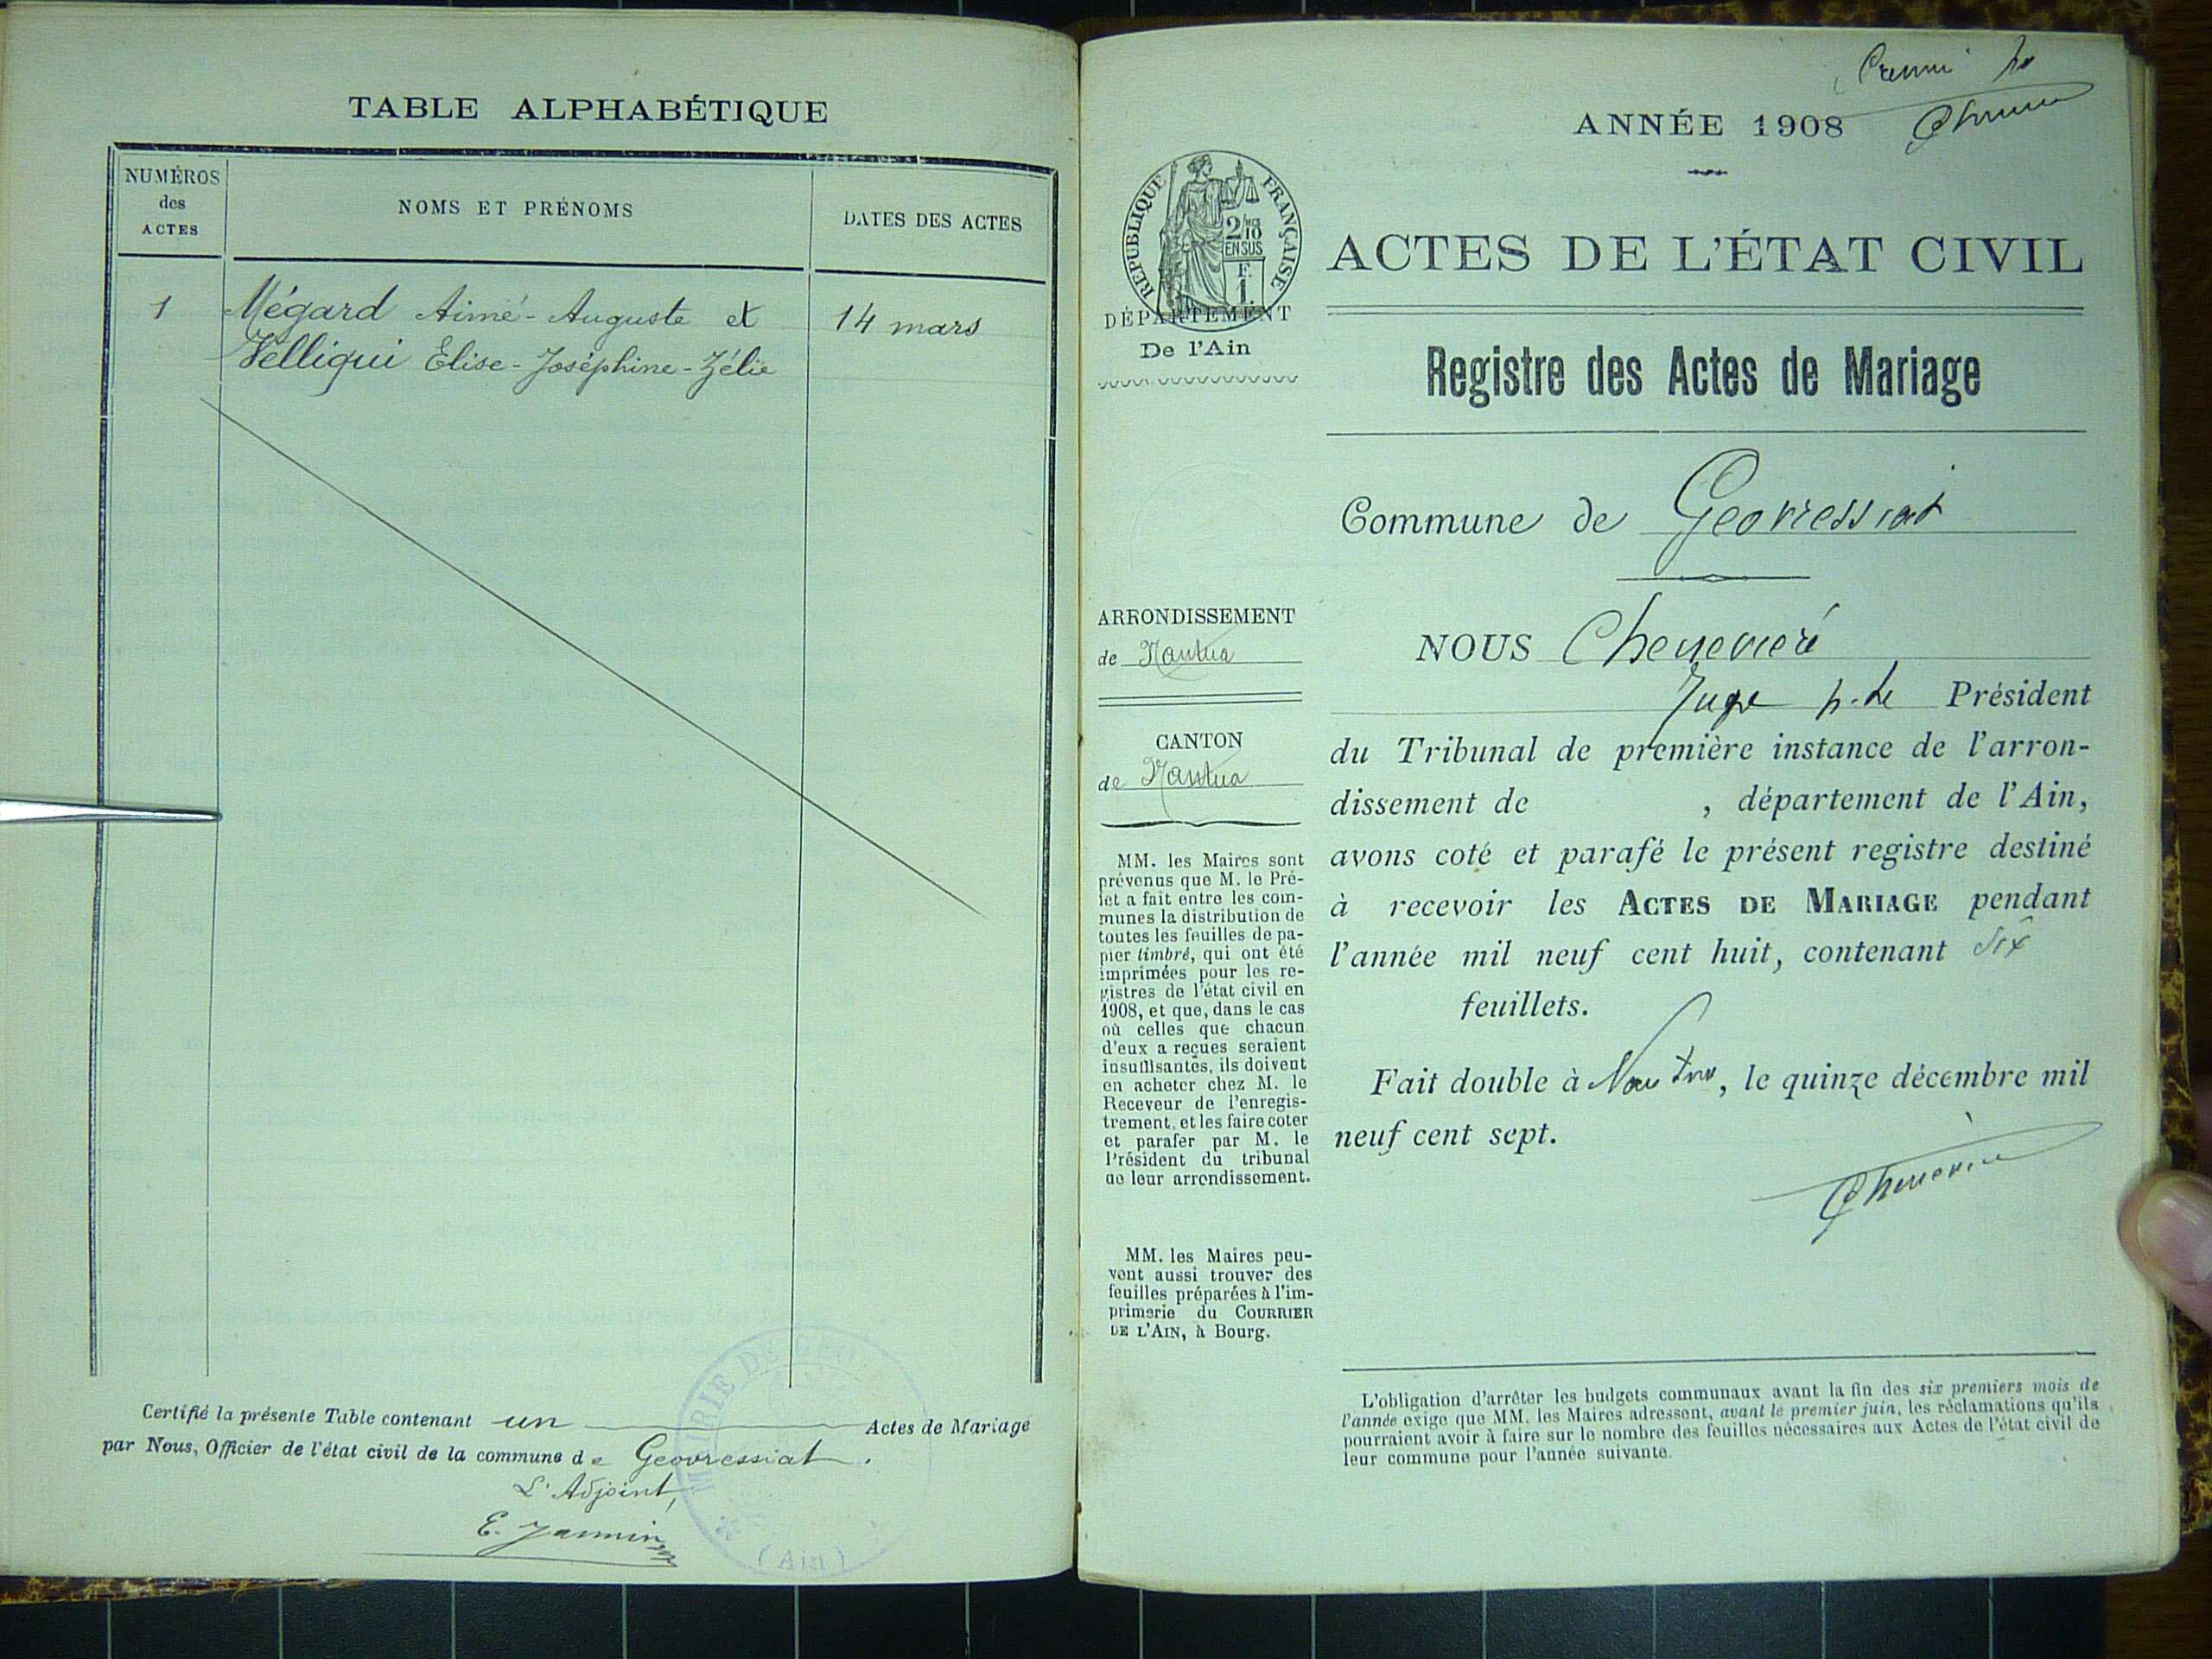 TABLE ALPHABÉTIQUE
NUMÉROS
des
ACTES
NOMS ET PRÉNOMS
DATES DES ACTES
1
Mégard Aimé-Auguste et
14 mars
Velliqui Élise-Joséphine-Zélie
Certifié la présente Table contenant un Actes de Mariage
par Nous, Officier de l'état civil de la commune de Geovressiat.
L'Adjoint,
E. Jannin
MAIRIE DE GEO
(Ain)
ANNÉE 1908
RÉPUBLIQUE FRANÇAISE
2/10
EN SUS
F.
1.
DÉPARTEMENT
De l'Ain
ACTES DE L'ÉTAT CIVIL
Registre des Actes de Mariage
Commune de Geovressiat
ARRONDISSEMENT
de Nantua
CANTON
de Nantua
MM. les Maires sont
prévenus que M. le Pré-
fet a fait entre les com-
munes la distribution de
toutes les feuilles de pa-
pier timbré, qui ont été
imprimées pour les re-
gistres de l'état civil en
1908, et que, dans le cas
où celles que chacun
d'eux a reçues seraient
insuffisantes, ils doivent
en acheter chez M. le
Receveur de l'enregis-
trement, et les faire coter
et parafer par M. le
Président du tribunal
de leur arrondissement.
MM. les Maires peu-
vent aussi trouver des
feuilles préparées à l'im-
primerie du COURRIER
DE L'AIN, à Bourg.
NOUS
Juge p. le Président
du Tribunal de première instance de l'arron-
dissement de , département de l'Ain,
avons coté et parafé le présent registre destiné
à recevoir les ACTES DE MARIAGE pendant
l'année mil neuf cent huit, contenant six
feuillets.
Fait double à Nantua, le quinze décembre mil
neuf cent sept.
L'obligation d'arrêter les budgets communaux avant la fin des six premiers mois de
l'année exige que MM. les Maires adressent, avant le premier juin, les réclamations qu'ils
pourraient avoir à faire sur le nombre des feuilles nécessaires aux Actes de l'état civil de
leur commune pour l'année suivante.